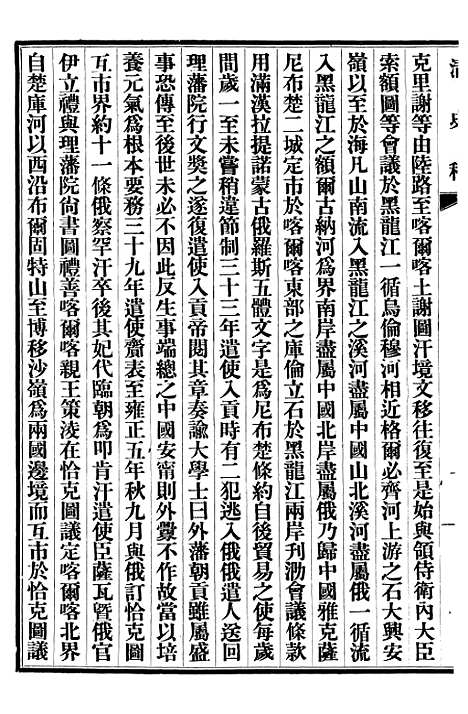 清史稿
克里謝等由陸路至喀爾喀土謝圖汗境文移往復至是始與領侍衛內大臣
索額圖等會議於黑龍江一循烏倫穆河相近格爾必齊河上游之石大興安
嶺以至於海凡山南流入黑龍江之溪河盡屬中國山北溪河盡屬俄一循流
入黑龍江之額爾古納河爲界南岸盡屬中國北岸盡屬俄乃歸中國雅克薩
尼布楚二城定市於喀爾喀東部之庫倫立石於黑龍江兩岸刋泐會議條款
用滿漢拉提諾蒙古俄羅斯五體文字是爲尼布楚條約自後貿易之使每歲
間歲一至未嘗稍違節制三十三年遣使入貢時有二犯逃入俄俄遣人送回
理藩院行文奬之遂復遣使入貢帝閱其章奏諭大學士曰外藩朝貢雖屬盛
事恐傳至後世未必不因此反生事端總之中國安甯則外釁不作故當以培
養元氣爲根本要務三十九年遣使齎表至雍正五年秋九月與俄訂恰克圖
互市界約十一條俄察罕汗卒後其妃代臨朝爲叩肯汗遣使臣薩瓦曁俄官
伊立禮與理藩院尙書圖禮善喀爾喀親王策淩在恰克圖議定喀爾喀北界
自楚庫河以西沿布爾固特山至博移沙嶺爲兩國邊境而互市於恰克圖議